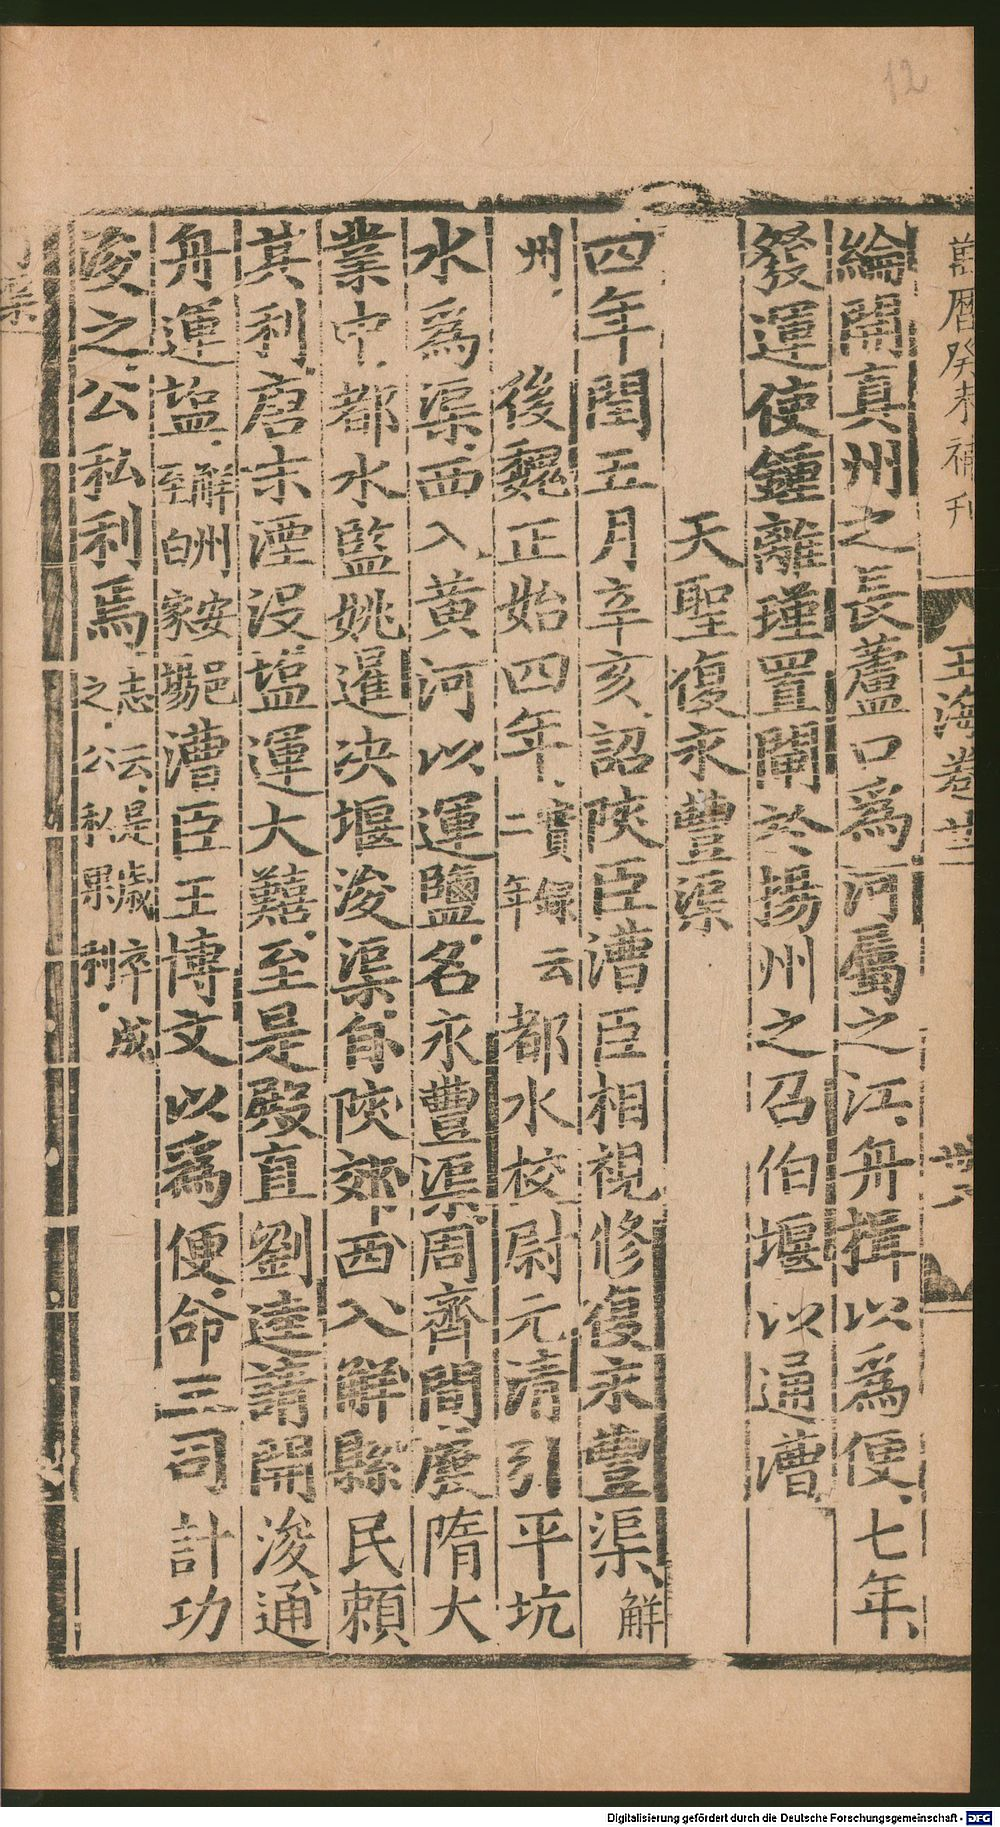 12
萬曆癸未補刊
玉海卷廿二
綸開真州之長蘆口爲河屬之江舟楫以爲便七年
發運使鍾離瑾置閘於揚州之召伯堰以通漕
天聖復永豐渠
四年閏五月辛亥詔陝臣漕臣相視修復永豐渠解
州後魏正始四年實録云二年都水校尉元清引平坑
水爲渠西入黄河以運鹽名永豐渠周齊間廢隋大
業中都水監姚暹决堰浚渠自陝郊西入解縣民頼
其利唐末湮没塩運大囏至是殿直劉逵請開浚通
舟運塩解州安邑至白家塲漕臣王博文以爲便命三司計功
浚之公私利焉志云是歲卒成之公私果利
Digitalisierung gefördert durch die Deutsche Forschungsgemeinschaft - DFG